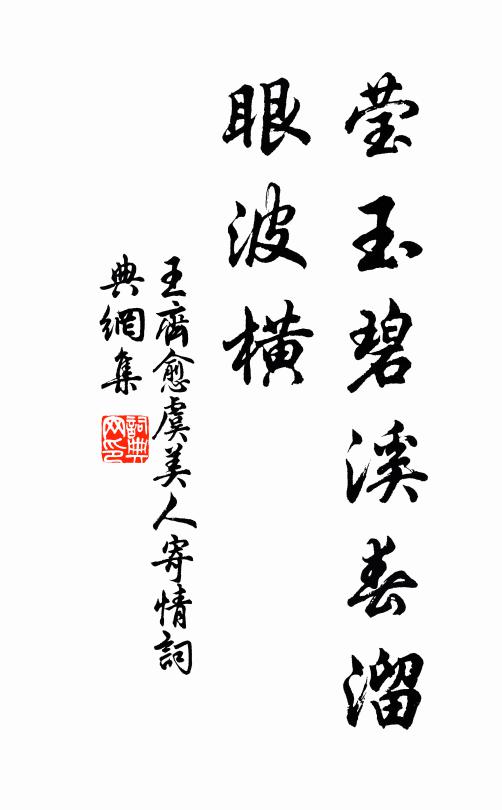 莹玉碧溪春溜
眼波横
王齊愈虞美人寄情詞
典網集
詞典
网印